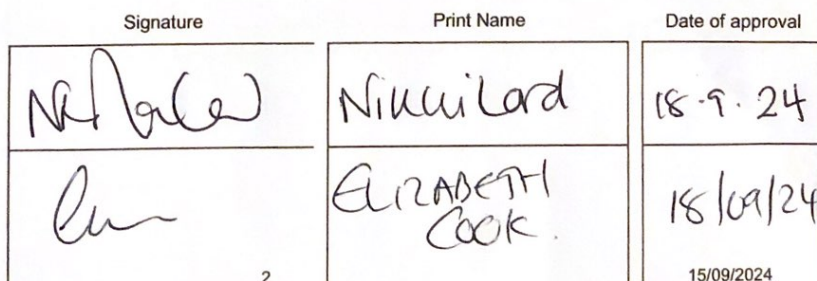 Signature Print Name Date of approval
Nikki Lord 18.9.24
ELIZABETH
COOK. 18/09/24
2 15/09/2024